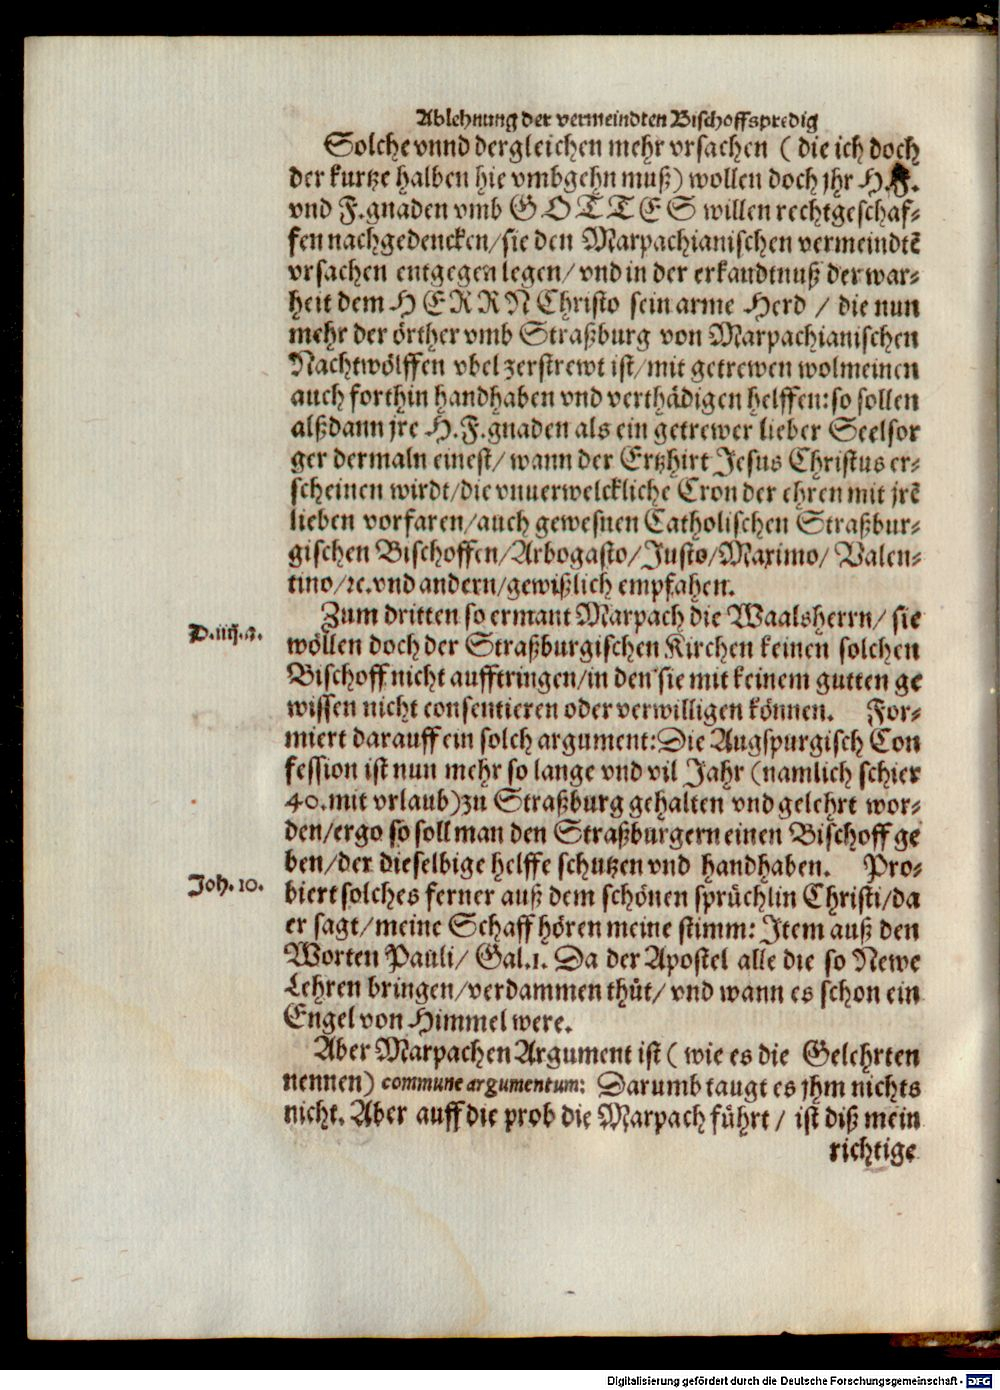 Ablehnung der vermeindten Bischoffspredig
Solche vnnd dergleichen mehr vrsachen ( die ich doch
der kurtze halben hie vmbgehn muß) wollen doch jhr H.F.
vnd F.gnaden vmb GOTTES willen rechtgeschaf-
fen nachgedencken/sie den Marpachianischen vermeindtẽ
vrsachen entgegen legen/ vnd in der erkandtnuß der war-
heit dem HERRN Christo sein arme Herd / die nun
mehr der örther vmb Straßburg von Marpachianischen
Nachtwölffen vbel zerstrewt ist/mit getrewen wolmeinen
auch forthin handhaben vnd verthädigen helffen:so sollen
alßdann jre H.F.gnaden als ein getrewer lieber Seelsor
ger dermaln einest/ wann der Ertzhirt Jesus Christus er-
scheinen wirdt/die vnuerwelckliche Cron der ehren mit jrẽ
lieben vorfaren/auch gewesnen Catholischen Straßbur-
gischen Bischoffen/Arbogasto/Justo/Maximo/ Valen-
tino/ꝛc.vnd andern/gewißlich empfahen.
Zum dritten so ermant Marpach die Waalsherrn/ sie
D.iiij.a.
wöllen doch der Straßburgischen Kirchen keinen solchen
Bischoff nicht aufftringen/in den sie mit keinem gutten ge
wissen nicht consentieren oder verwilligen können. For-
miert darauff ein solch argument:Die Augspurgisch Con
fession ist nun mehr so lange vnd vil Jahr (namlich schier
40.mit vrlaub)zu Straßburg gehalten vnd gelehrt wor-
den/ergo so soll man den Straßburgern einen Bischoff ge
ben/der dieselbige helffe schutzen vnd handhaben. Pro-
Joh. 10.
biert solches ferner auß dem schönen sprüchlin Christi/da
er sagt/meine Schaff hören meine stimm: Item auß den
Worten Pauli/ Gal.1. Da der Apostel alle die so Newe
Lehren bringen/verdammen thüt/ vnd wann es schon ein
Engel von Himmel were.
Aber Marpachen Argument ist ( wie es die Gelehrten
nennen) commune argumentum: Darumb taugt es jhm nichts
nicht. Aber auff die prob die Marpach führt / ist diß mein
richtige
Digitalisierung gefördert durch die Deutsche Forschungsgemeinschaft - DFG